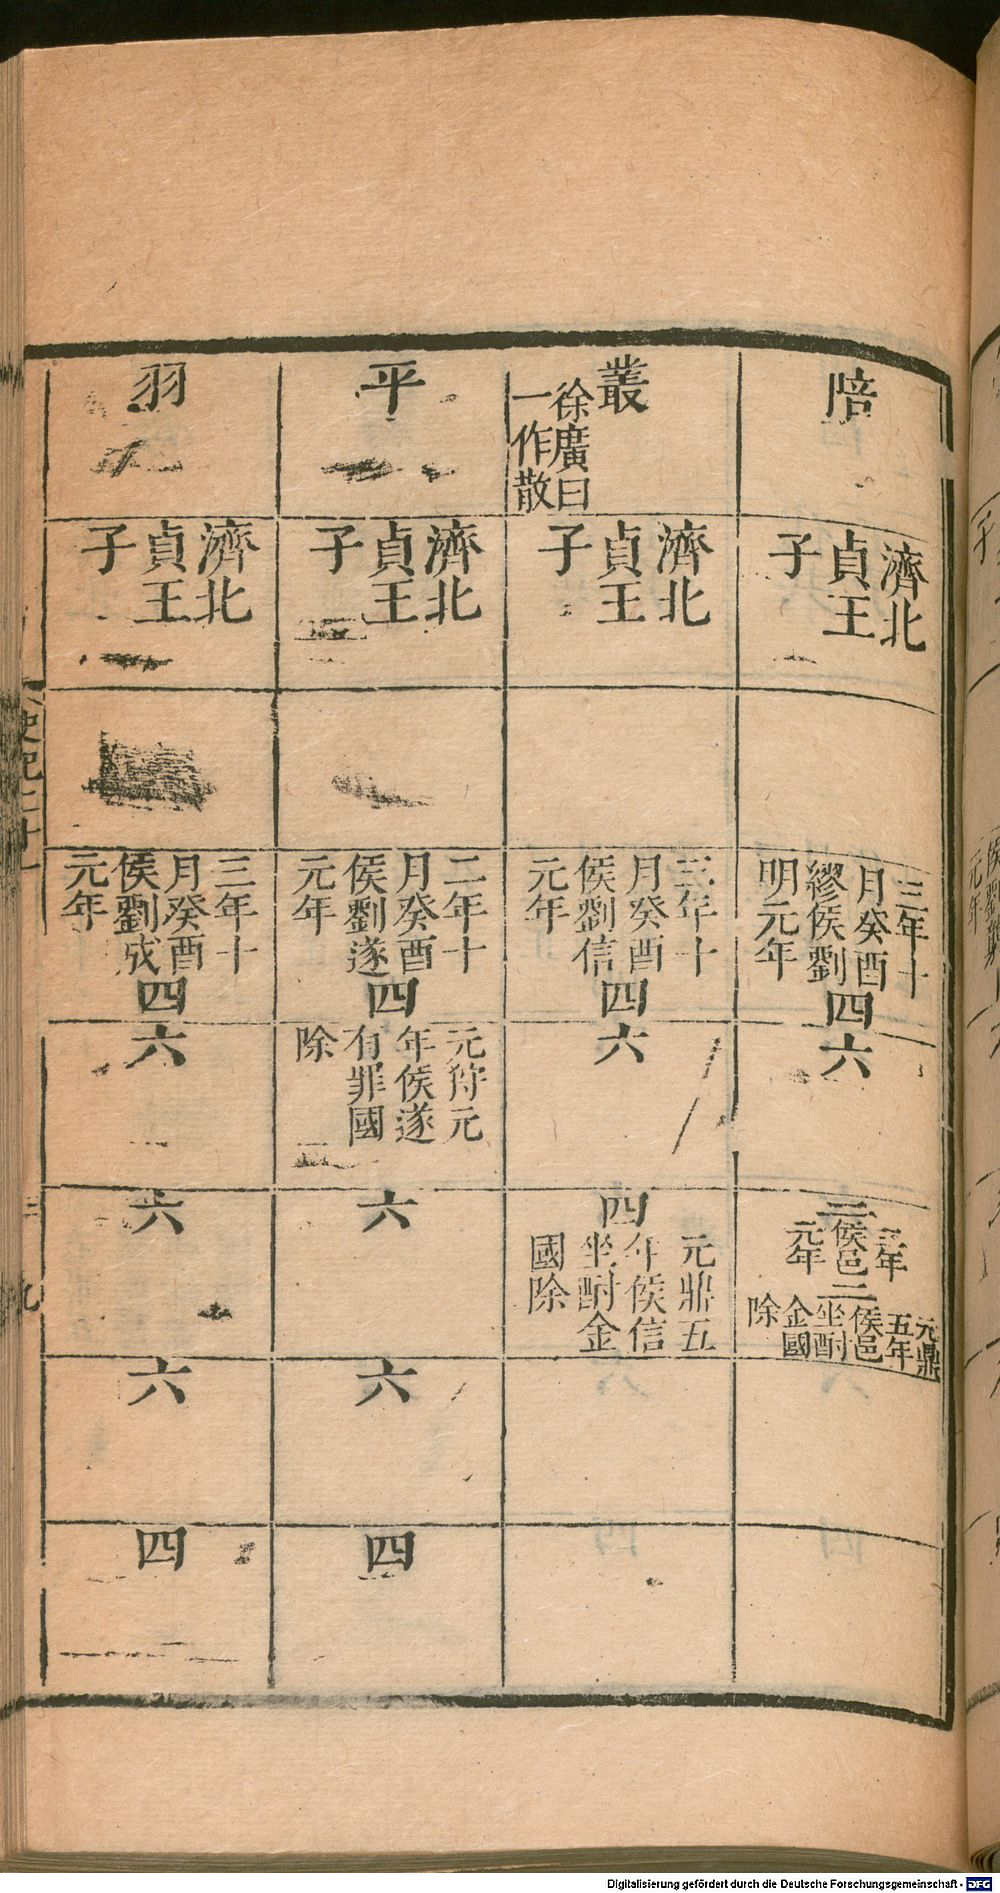 陪
濟北
貞王
子
三年十
月癸酉
繆侯劉
明元年
四
六
二
三年
侯邑
元年
二
元鼎
五年
侯邑
坐酎
金國
除
叢
徐廣曰
一作散
濟北
貞王
子
三年十
月癸酉
侯劉信
元年
四
六
四
元鼎五
年侯信
坐酎金
國除
平
濟北
貞王
子
二年十
月癸酉
侯劉遂
元年
四
元狩元
年侯遂
有罪國
除
六
六
四
羽
濟北
貞王
子
三年十
月癸酉
侯劉成
元年
四
六
六
六
四
Digitalisierung gefördert durch die Deutsche Forschungsgemeinschaft - DFG